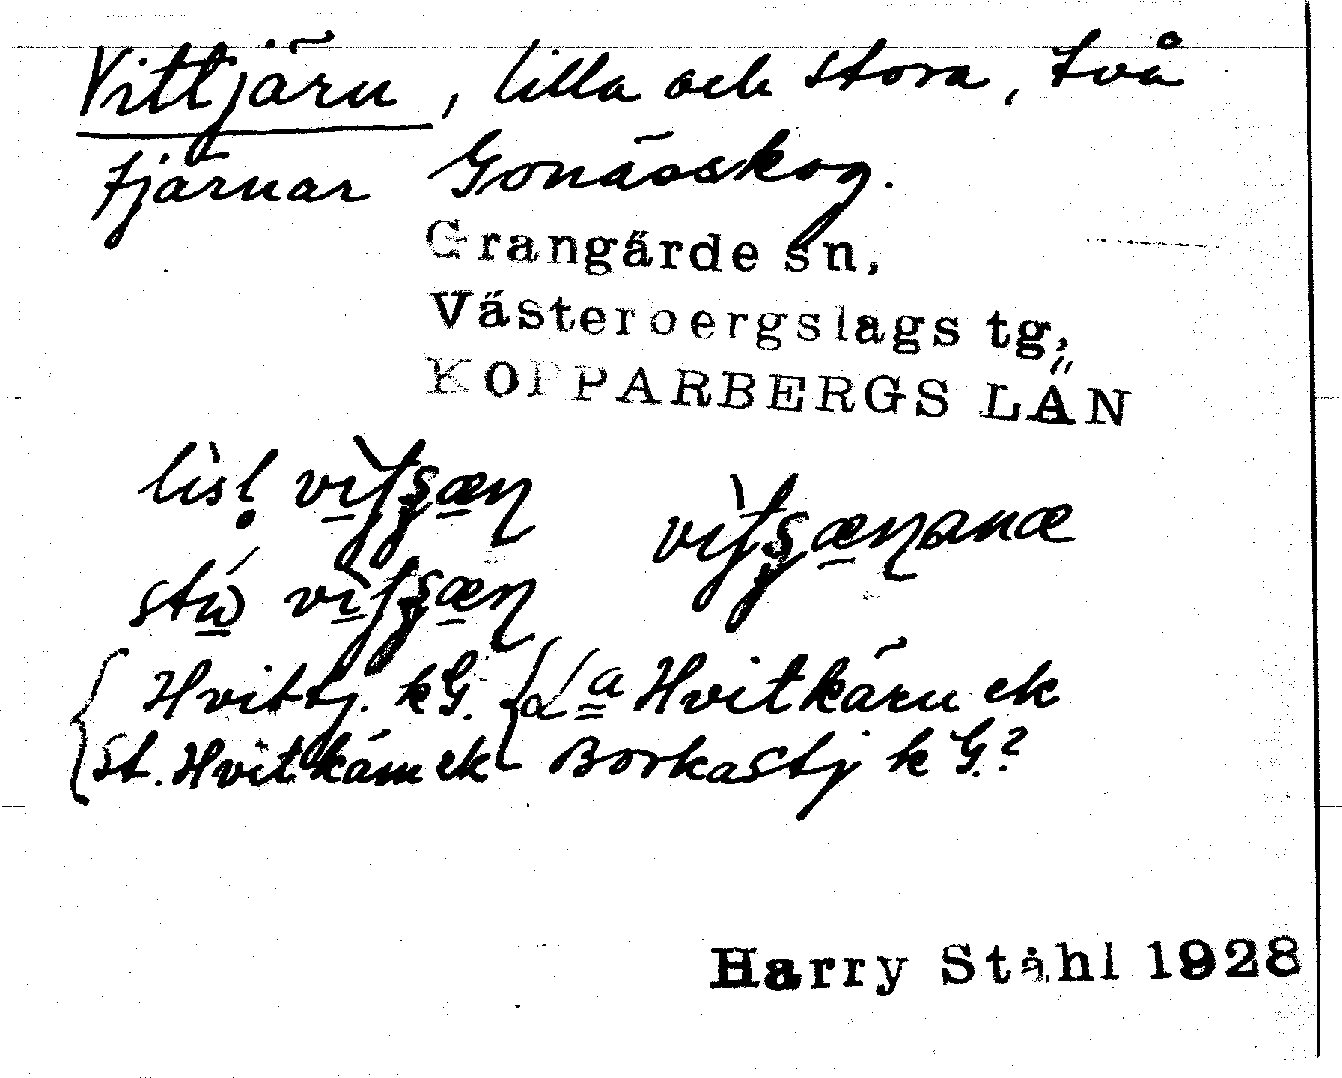 Vittjärn, lilla och stora, två
tjärnar Gonässkog.
Grangärde sn,
Västerbergslags tg,
KOPPARBERGS LÄN
Hvittj. kG. La Hvitkärn ek
St. Hvitkärn ek Borkastj k G.?
Harry Ståhl 1928